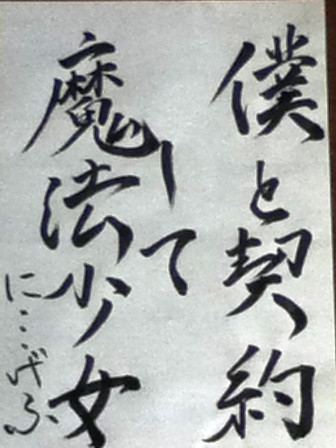 僕と契約
して
魔法少女
に…げふ